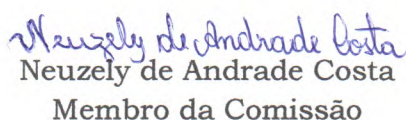 Neuzely de Andrade Costa
Neuzely de Andrade Costa
Membro da Comissão